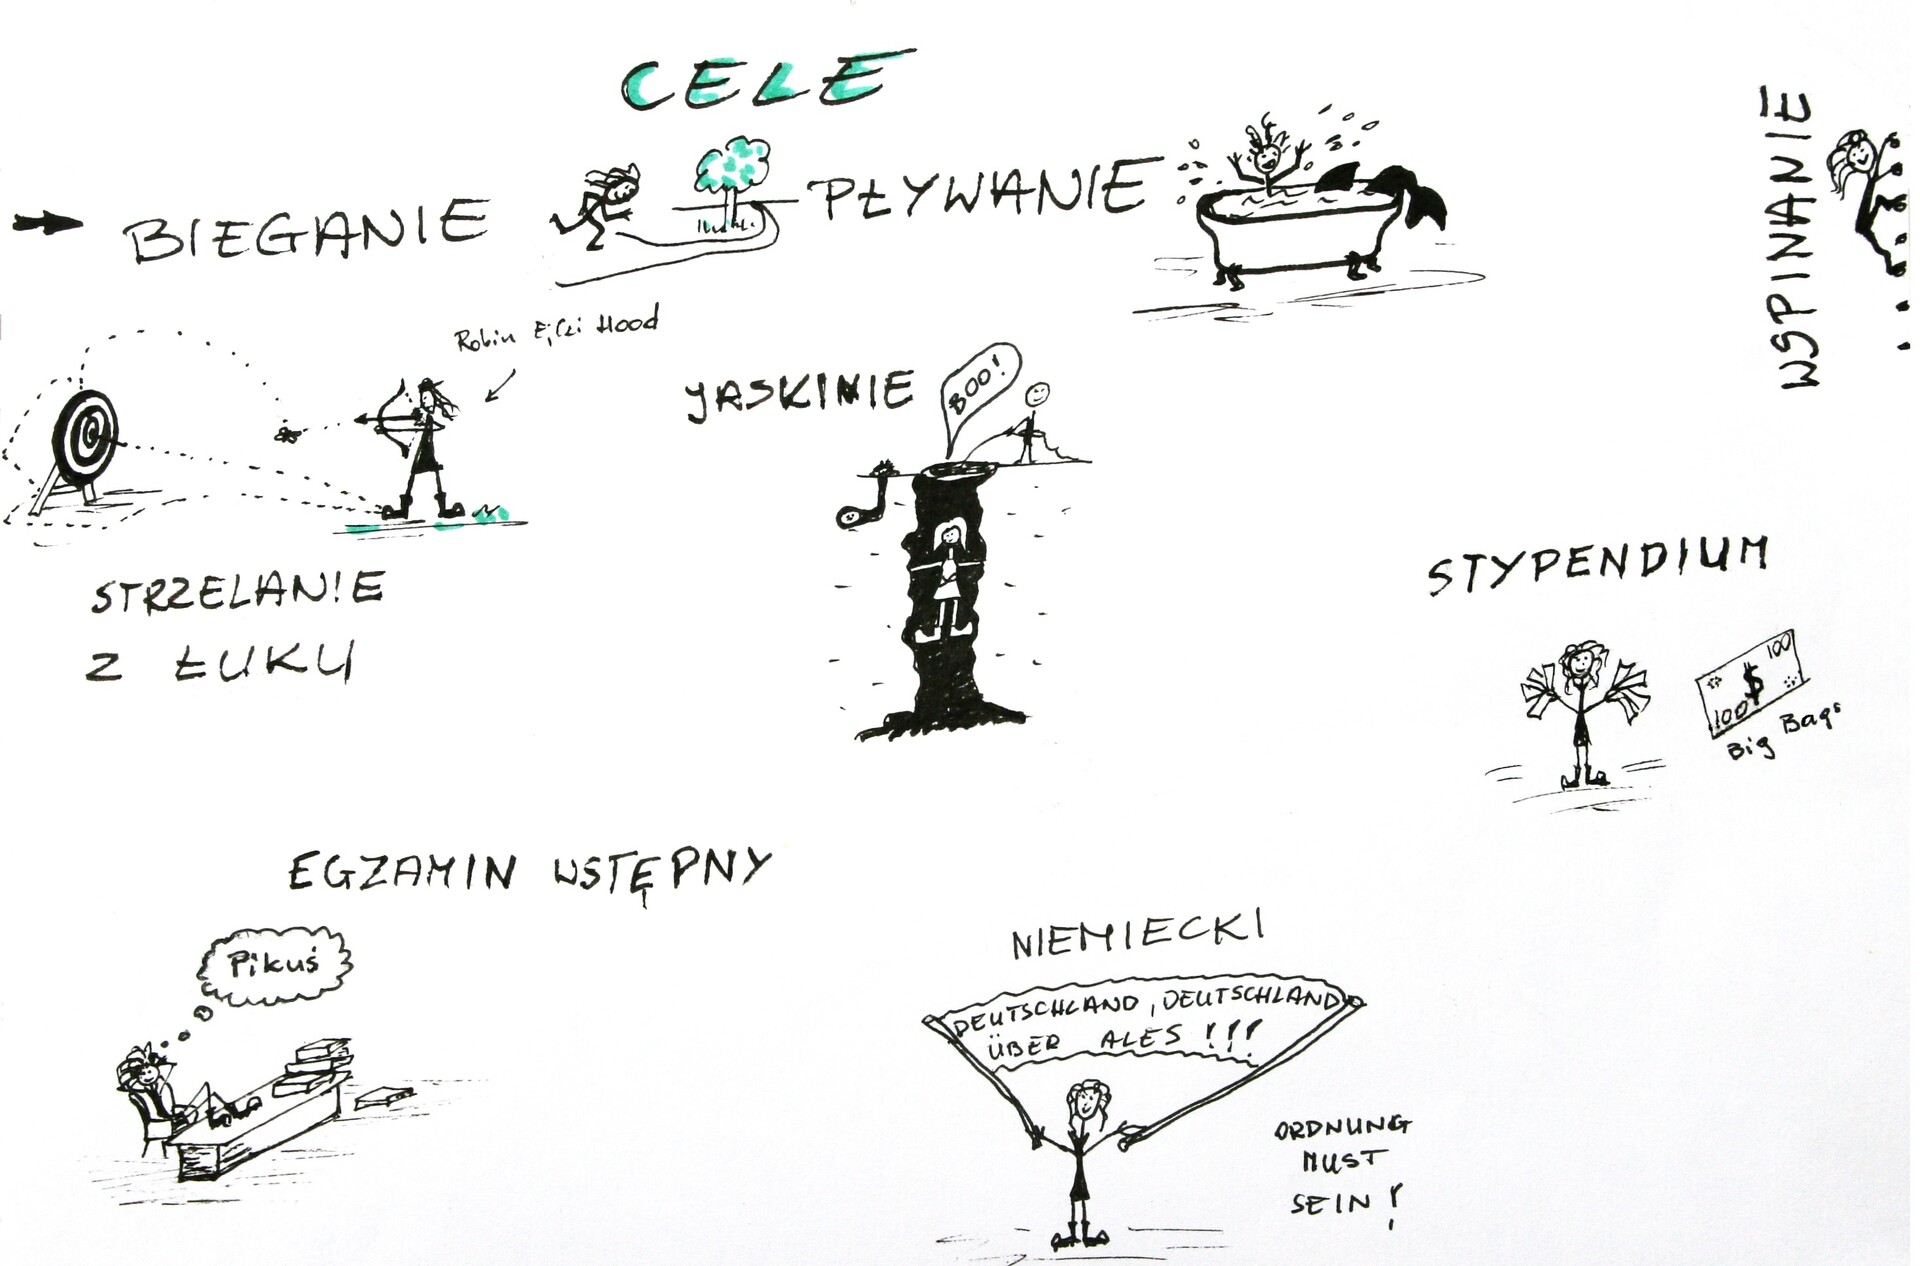 CELE
BIEGANIE
PŁYWANIE
WSPINANIE
Robin Hood
JASKINIE
BOO!
STRZELANIE
Z ŁUKU
STYPENDIUM
100
$
100
Big Bags
EGZAMIN WSTĘPNY
Pikuś
NIEMIECKI
DEUTSCHLAND, DEUTSCHLAND
ÜBER ALES !!!
ORDNUNG
MUST
SEIN!